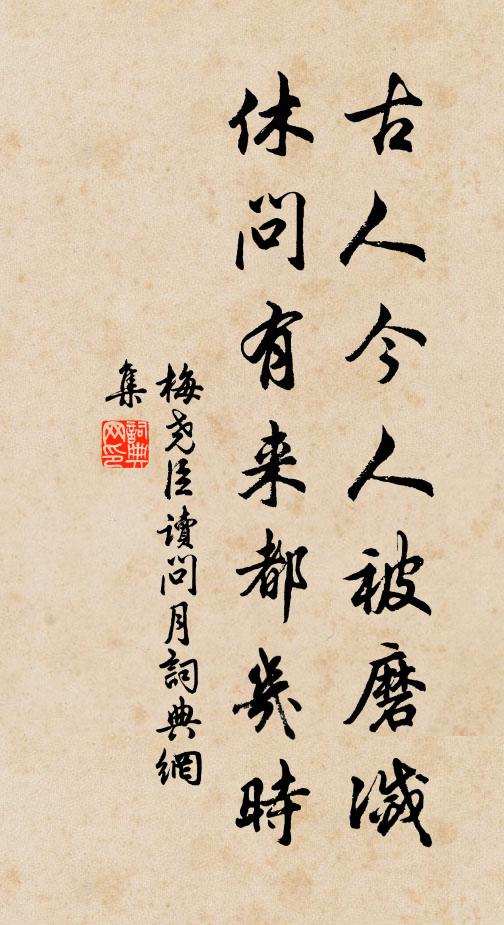 古人今人被磨滅
休問有来都幾時
梅堯臣讀問月詞典網
集
詞典
网印